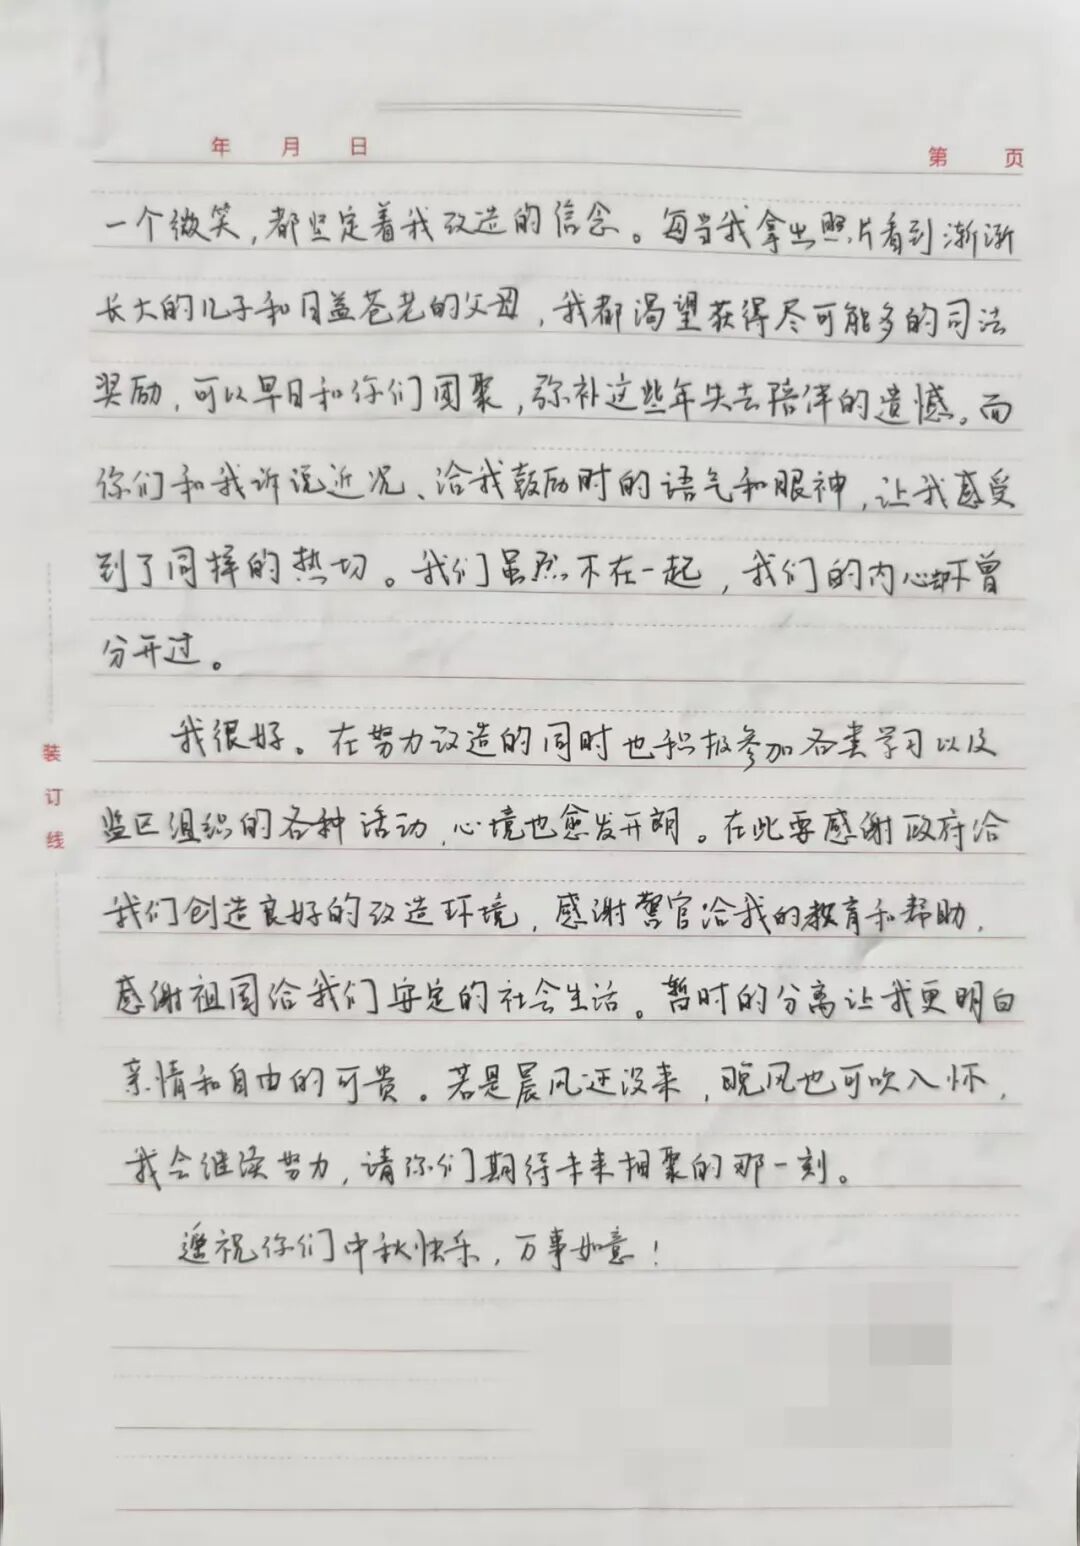 年 月 日
第 页
一个微笑，都坚定着我改造的信念。每当我拿出照片看到渐渐
长大的儿子和日益苍老的父母，我都渴望获得尽可能多的司法
奖励，可以早日和你们团聚，弥补这些年失去陪伴的遗憾。而
你们和我诉说近况、给我鼓励时的语气和眼神，让我感受
到了同样的热切。我们虽然不在一起，我们的内心却不曾
分开过。
我很好。在努力改造的同时也积极参加各类学习以及
监区组织的各种活动，心境也愈发开朗。在此要感谢政府给
我们创造良好的改造环境，感谢警官给我的教育和帮助，
感谢祖国给我们安定的社会生活。暂时的分离让我更明白
亲情和自由的可贵。若是晨风还没来，晚风也可吹入怀，
我会继续努力，请你们期待未来相聚的那一刻。
遥祝你们中秋快乐，万事如意！
装
订
线